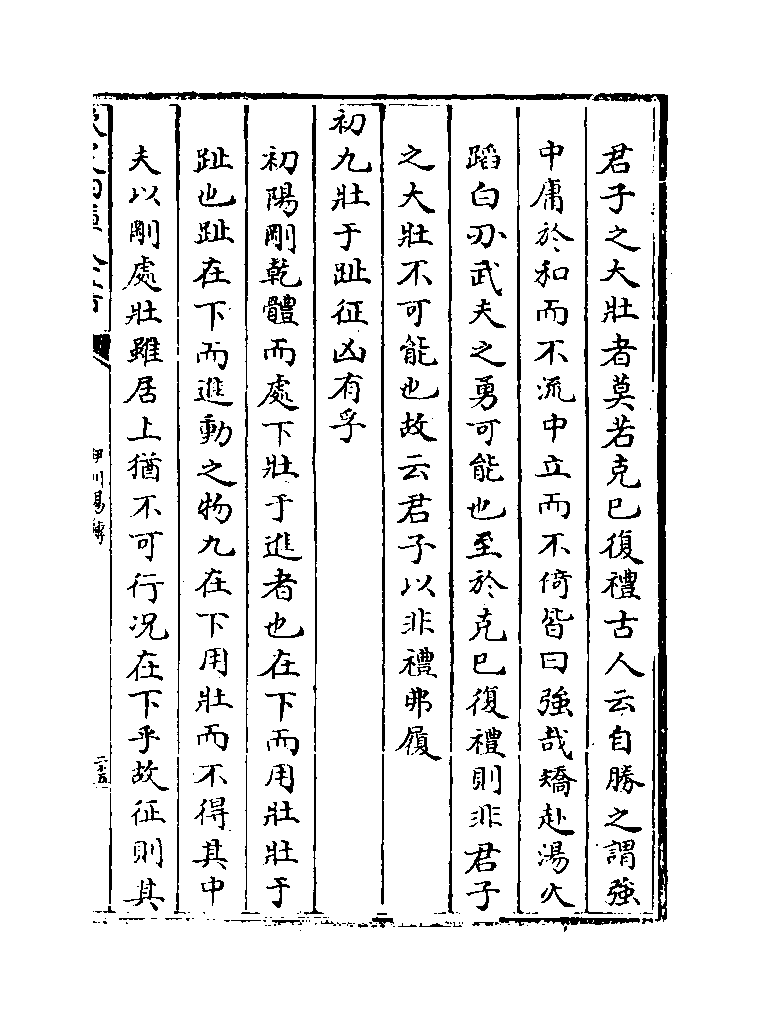 君子之大壯者莫若克已復禮古人云自勝之謂強
中庸於和而不流中立而不倚皆曰強哉矯赴湯火
蹈白刃武夫之勇可能也至於克已復禮則非君子
之大壯不可能也故云君子以非禮弗履
初九壯于趾征凶有孚
初陽剛乾體而處下壯于進者也在下而用壯壯于
趾也趾在下而進動之物九在下用壯而不得其中
夫以剛處壯雖居上猶不可行况在下乎故征則其
伊川易傳